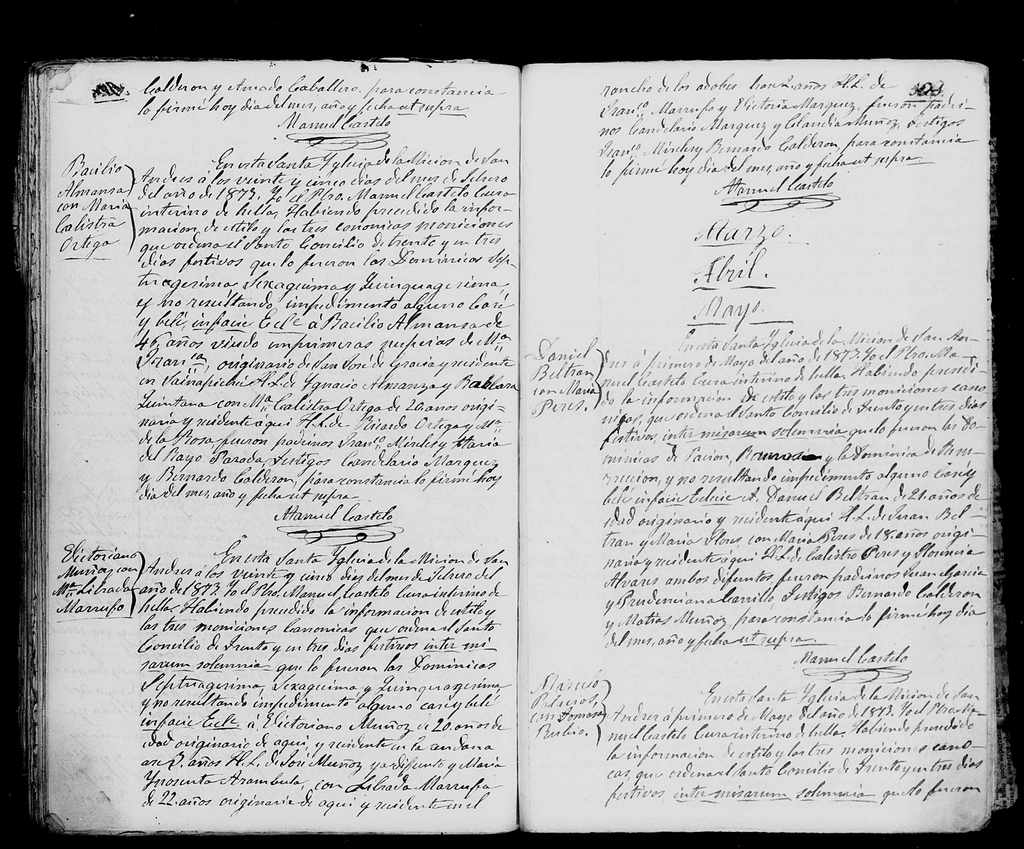 Calderon y Amado Caballero. para constancia
lo firmé hoy dia del mes, año y fecha ut supra
Manuel Castelo
Bacilio
Almansa
con Maria
Calistra
Ortega
En esta Santa Yglecia de la Micion de San
Andres á los veinte y cinco dias del mes de Febrero
del año de 1873. Yo el Pbro. Manuel Castelo Cura
interino de hella, Habiendo precedido la infor-
macion, de estilo y las tres canonicas moniciones
que ordena el Santo Concilio de trento y en tres
dias festivos que lo fueron las Dominicas Sep-
tuagesima, Sexagecima y Quinquagesima
y no resultando, impedimento alguno Casé
y belé, infacie Ecle á Bacilio Almansa de
46 años viudo imprimeras nupcias de Ma.
Fran.ca, originario de San José de Gracia y recidente
en H.L. de Ygnacio Almanza y Barbara
Quintana con Ma. Calistra Ortega de 20 años origi-
naria y recidente aqui H.L. de Ricardo Ortega y Ma.
de la Rosa fueron padrinos Fran.co Mireles y Maria
del Rayo Parada, Testigos Candelario Marquez
y Bernardo Calderon, para constancia lo firme hoy
dia del mes, año y fecha ut supra
Manuel Castelo
Victoriano
Muñoz con
Ma. Librada
Marrufo
En esta Santa Yglecia de la Micion de San
Andres á los veinte y cinco dias del mes de Febrero del
año de 1873. Yo el Pbro. Manuel Castelo Cura interino de
hella. Habiendo precedido la informacion de estilo y
las tres moniciones Canonicas que ordena el Santo
Concilio de Trento y en tres dias festivos inter mi
sarum solemnia que lo fueron las Dominicas
Septuagesima, Sexagecima y Quinquagesima
y no resultando impedimento alguno casé y belé
infacie Ecle. á Victoriano Muñoz de 20 años de
edad originario de aqui, y recidente en la
años H.L. de José Muñoz ya difunto y Maria
Ynosenta Arambula, con Librada Marrufa
de 22 años originaria de aqui y recidente en el
rancho de los adobes años H.L. de
Fran.co Marrufo y Victoria Marquez, fueron padri-
nos Candelario Marquez y Claudia Muñoz, Testigos
Fran.co Mireles y Bernardo Calderon, para constancia
lo firmé hoy dia del mes, año y fecha ut supra
Manuel Castelo
Marzo.
Abril.
Mayo.
Daniel
Beltran
con Maria
Peres.
En esta Santa Yglecia de la Micion de San An-
dres á primero de Mayo del año de 1873. Yo el Pbro. Ma-
nuel Castelo Cura interino de hella. Habiendo precedi-
do la informacion de estilo y las tres moniciones cano
nigas, que ordena el Santo Concilio de Trento y en tres dias
festivos, inter misarum solemnia que lo fueron las Do-
minicas de Pacion, Ramos y la Dominica de Resu-
rreccion, y no resultando impedimento alguno casé y
belé infacie Eclecie A. Daniel Beltran, de 21 años de
edad originario y recidente aqui H.L. de Juan Bel-
tran y Maria Flores con Maria Peres de 18. años origi-
naria y recidente aqui H.L. de Calistro Peres y Florencia
Alvares ambos difuntos fueron padrinos Juan Garcia
y Prudenciana Carrillo Testigos Bernardo Calderon
y Matias Muñoz, para constancia lo firme hoy dia
del mes, año y fecha ut supra
Manuel Castelo
con Tomasa
Rubio.
En esta Santa Yglecia de la Micion de San
Andres á primero de Mayo del año de 1873. Yo el Pbro. Ma-
nuel Castelo Cura interino de hella. Habiendo precedido
la informacion de estilo y las tres moniciones cano-
cas, que ordena el Santo Concilio de Trento y en tres dias
festivos inter misarum solemnia que lo fueron